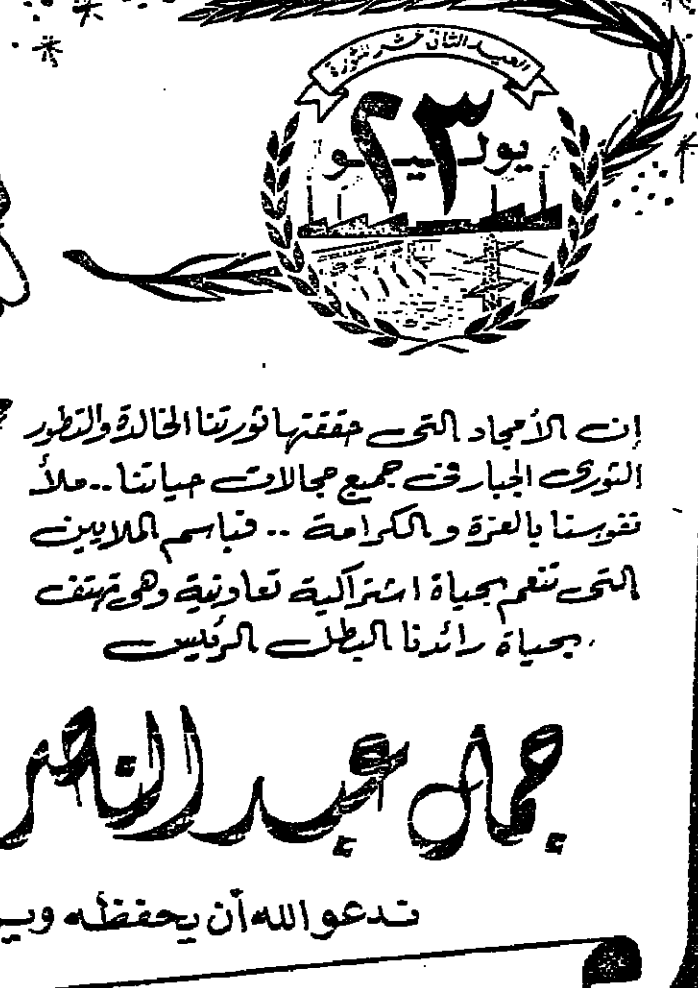 العيد الثاني عشر للثورة
٢٣
يوليو
إن الأمجاد التى حققتها ثورتنا الخالدة والتطور
الثورى الجبار فى جميع مجالات حياتنا .. ملأ
نفوسنا بالعزة والكرامة .. فباسم الملايين
التى تنعم بحياة اشتراكية تعاونية وهى تهتف
بحياة رائدنا البطل الرئيس
جمال عبد الناصر
ندعو الله أن يحفظه